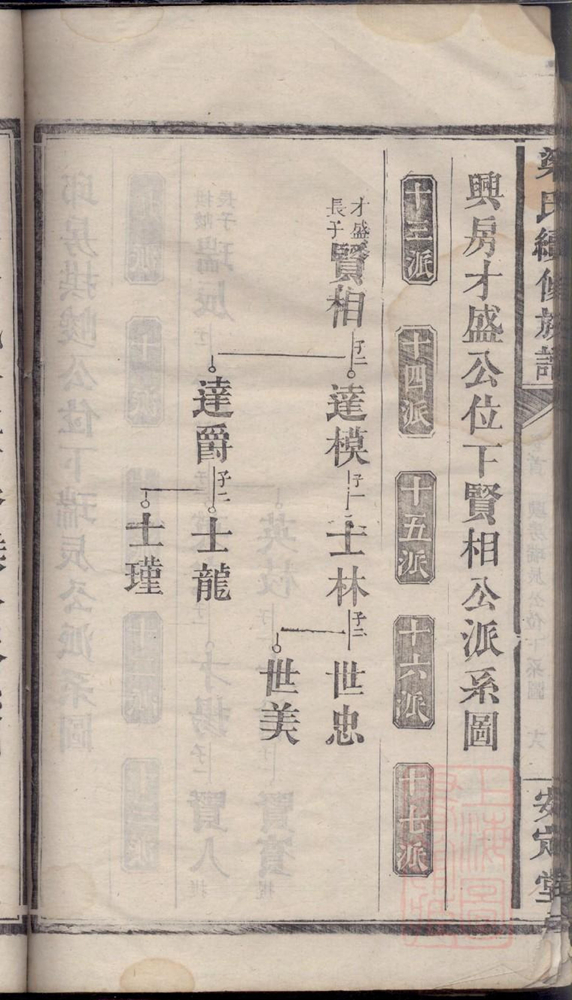 梁氏續修族譜
安定堂
興房才盛公位下賢相公派系圖
十三派
十四派
十五派
十六派
十七派
才盛長子
賢相
子二
達模
子一
士林
子二
世忠
世美
達爵
子二
士龍
士瑾